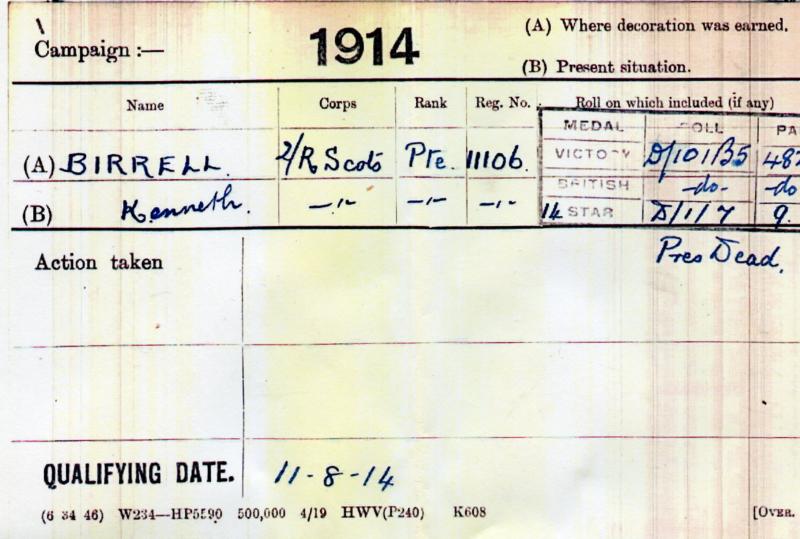 Campaign :— 1914 (A) Where decoration was earned.
(B) Present situation.
Name Corps Rank Reg. No. Roll on which included (if any)
MEDAL ROLL PA
(A) BIRRELL. 2/R Scots Pte. 11106. VICTORY D/101/B5 482
BRITISH -do- -do
(B) Kenneth. —"— —"— —"— 14 STAR D/1/7 9.
Action taken Pres Dead.
QUALIFYING DATE. 11-8-14
(6 34 46) W234—HP5590 500,000 4/19 HWV(P240) K608 [OVER.